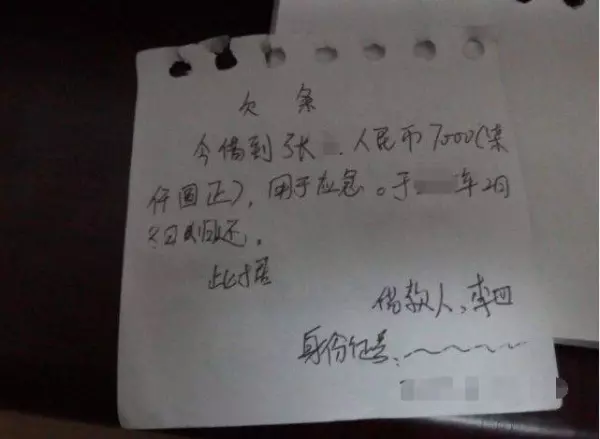 欠 条
今借到张 . 人民币 7000(柒
仟圆正), 用于应急。于 年2月
日归还。
此据
借款人: 李四
身份证号: